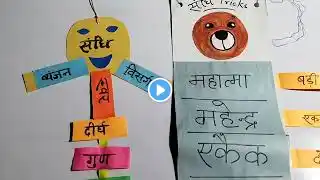 संधि
व्यंजन
विसर्ग
स्वर
दीर्घ
गुण
संधि Tricks
महात्मा
महेन्द्र
एकैक
बड़ी
एक